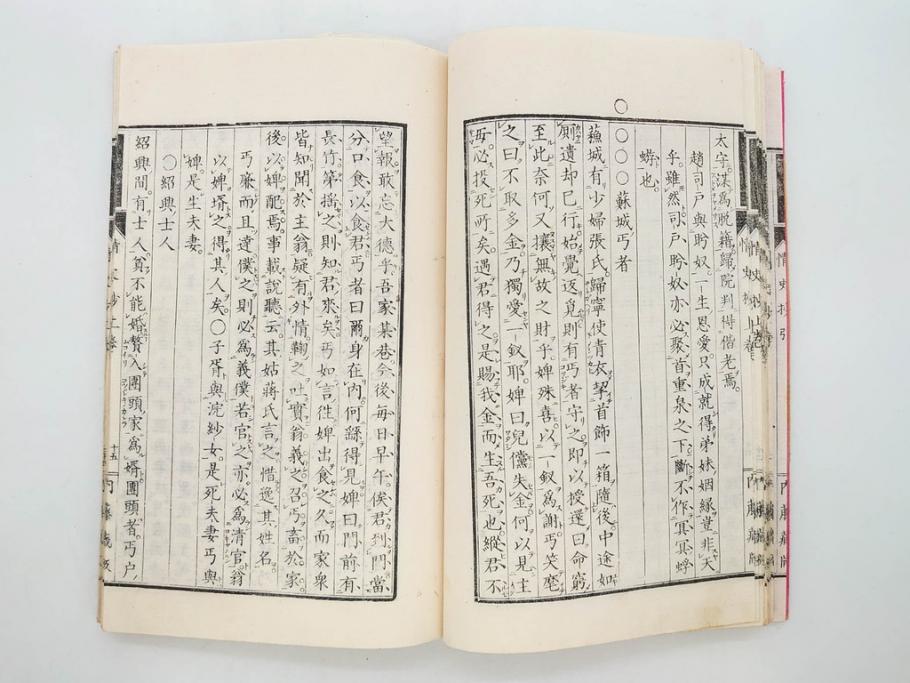 太守謀爲脱籍歸院判得偕老焉。
趙司戸與盻奴一生恩愛只成就得弟妹姻緣豈非天
乎。雖然司戸盻奴亦必聚首重泉之下斷不作冥冥蜉
蝣也。
○
○○○蘇城丐者
蘓城有少婦張氏歸寧使青衣挈首飾一箱隨後中途如
厠遺却已行始覺返覓則有丐者守之即以授還曰命窮
至此奈何又攘無故之財乎婢殊喜以一釵爲謝丐笑麾
之曰不取多金乃獨愛一釵耶婢曰兒儻失金何以見主
毋必投死所矣遇君得之是賜我金而生吾死也縱君不
望報敢忘大德乎吾家某巷今後毎日早午俟君到門當
分口食以食君丐者曰爾身在内何繇得見婢曰門前有
長竹第揺之則知君來矣丐如言徃婢出食之久而家衆
皆知聞於主翁疑有外情鞫之吐實翁義之召丐畜於家
後以婢配焉事載説聽云其姑蒋氏言之惜逸其姓名
丐廉而且達僕之則必爲義僕若官之亦必爲清官翁
以婢壻之得其人矣○子胥與浣紗女是死夫妻丐與
婢是生夫妻。
○紹興士人
紹興間有士人貧不能婚贅入團頭家爲婿團頭者丐戸
情史抄上卷
十五
内藤藏版
情史抄引
内藤藏版